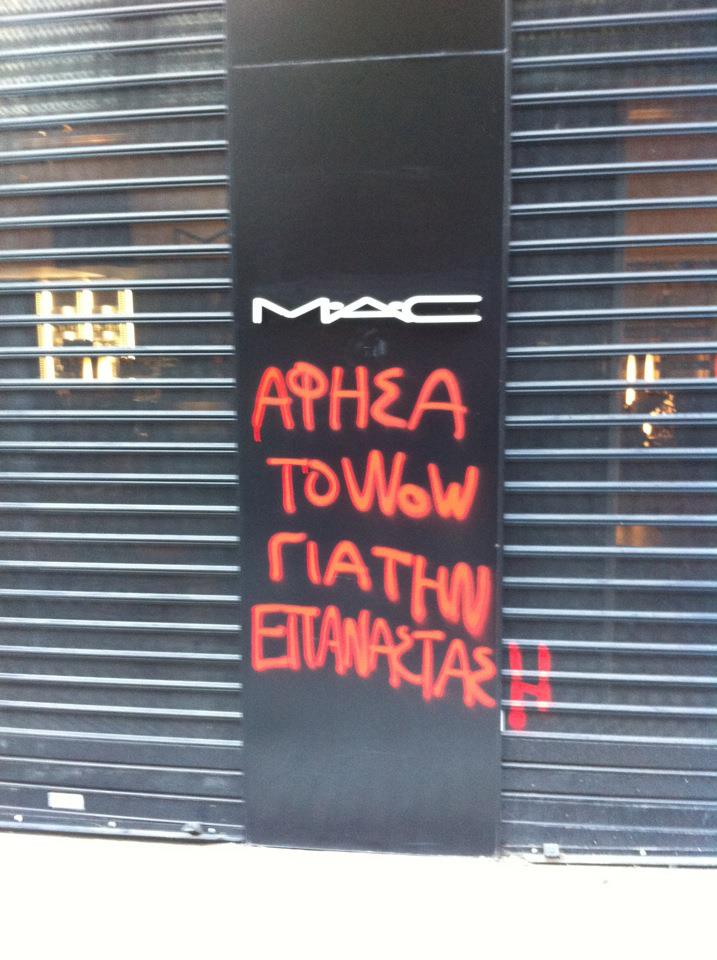 MAC
ΑΦΗΣΑ
ΤΟ WoW
ΓΙΑ ΤΗΝ
ΕΠΑΝΑΣΤΑΣΗ!